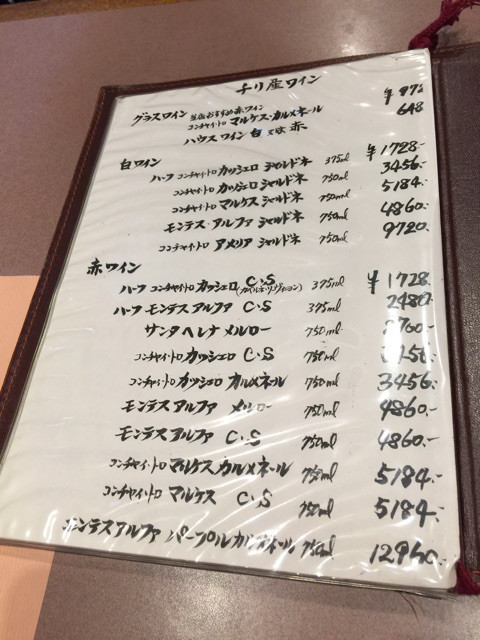 チリ産ワイン
グラスワイン 当店おすすめ赤ワイン ¥972
コンチャイ・トロ マルケス・カルメネール 648
ハウスワイン 白 又は 赤
白ワイン
ハーフ コンチャイ・トロ カッシェロ シャルドネ 375ml ¥1728.-
コンチャイ・トロ カッシェロ シャルドネ 750ml 3456.-
コンチャイ・トロ マルケス シャルドネ 750ml 5184.-
モンテス・アルファ シャルドネ 750ml 4860.-
コンチャイ・トロ アメリア シャルドネ 750ml 9720.-
赤ワイン
ハーフ コンチャイ・トロ カッシェロ C・S 375ml ¥1728.-
ハーフ モンテスアルファ C・S 375ml 2480.-
サンタヘレナ メルロー 750ml
コンチャイ・トロ カッシェロ C・S 750ml 3456.-
コンチャイ・トロ カッシェロ カルメネール 750ml 3456.-
モンテスアルファ メルロー 750ml 4860.-
モンテスアルファ C・S 750ml 4860.-
コンチャイ・トロ マルケス カルメネール 750ml 5184.-
コンチャイ・トロ マルケス C・S 750ml 5184.-
モンテスアルファ パープルカルメネール 750ml 12960.-